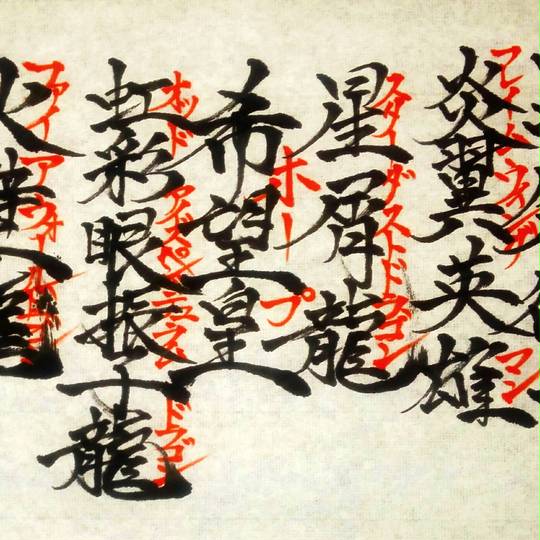 炎翼英雄
フレイムウィングマン
星屑龍
スターダストドラゴン
希望皇
ホープ
虹彩眼振子龍
オッドアイズペンデュラムドラゴン
ファイアウォール